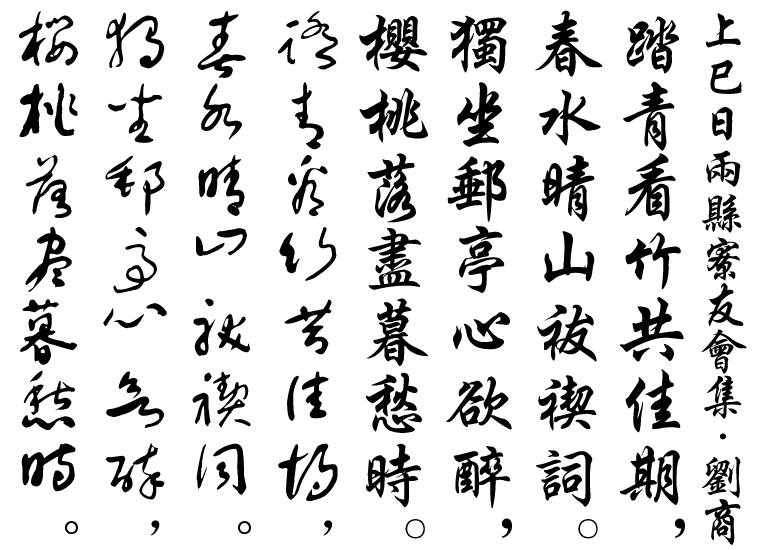 上巳日兩縣寮友會集·劉商
踏青看竹共佳期，
春水晴山祓禊詞。
獨坐郵亭心欲醉，
櫻桃落盡暮愁時。
踏青看竹共佳期，
春水晴山祓禊詞。
獨坐郵亭心欲醉，
櫻桃落盡暮愁時。